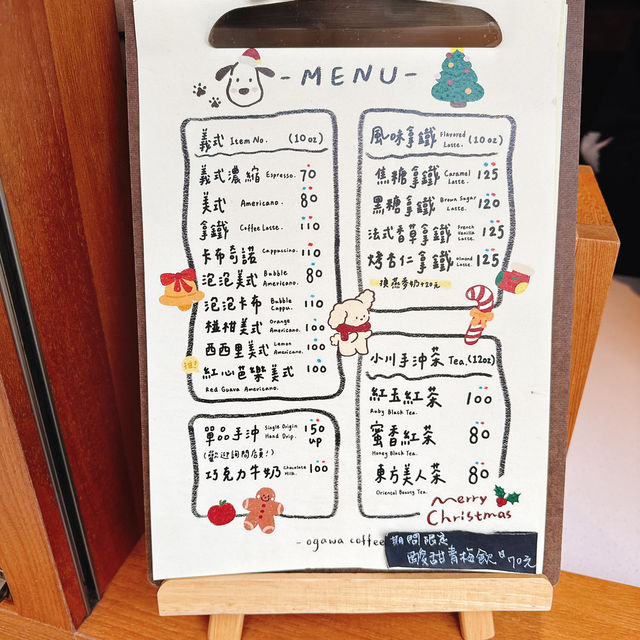 - MENU -
義式 Item No. (10 oz)
義式濃縮 Espresso. 70
美式 Americano. 80
拿鐵 Coffee Latte. 110
卡布奇諾 Cappuccino. 110
泡泡美式 Bubble Americano. 80
泡泡卡布 Bubble Cappu. 110
椪柑美式 Orange Americano. 100
西西里美式 Lemon Americano. 100
推! 紅心芭樂美式 100
Red Guava Americano.
單品手沖 Single Origin Hand Drip. 150 up
(歡迎詢問店員!)
巧克力牛奶 Chocolate Milk. 100
風味拿鐵 Flavored Latte. (10 oz)
焦糖拿鐵 Caramel Latte. 125
黑糖拿鐵 Brown Sugar Latte. 120
法式香草拿鐵 French Vanilla Latte. 125
烤杏仁拿鐵 Almond Latte. 125
換燕麥奶+20元
小川手沖茶 Tea. (12oz)
紅玉紅茶 100
Ruby Black Tea.
蜜香紅茶 80
Honey Black Tea.
東方美人茶 80
Oriental Beauty Tea.
Merry
Christmas
- ogawa coffee
期間限定
酸甜青梅飲 70元